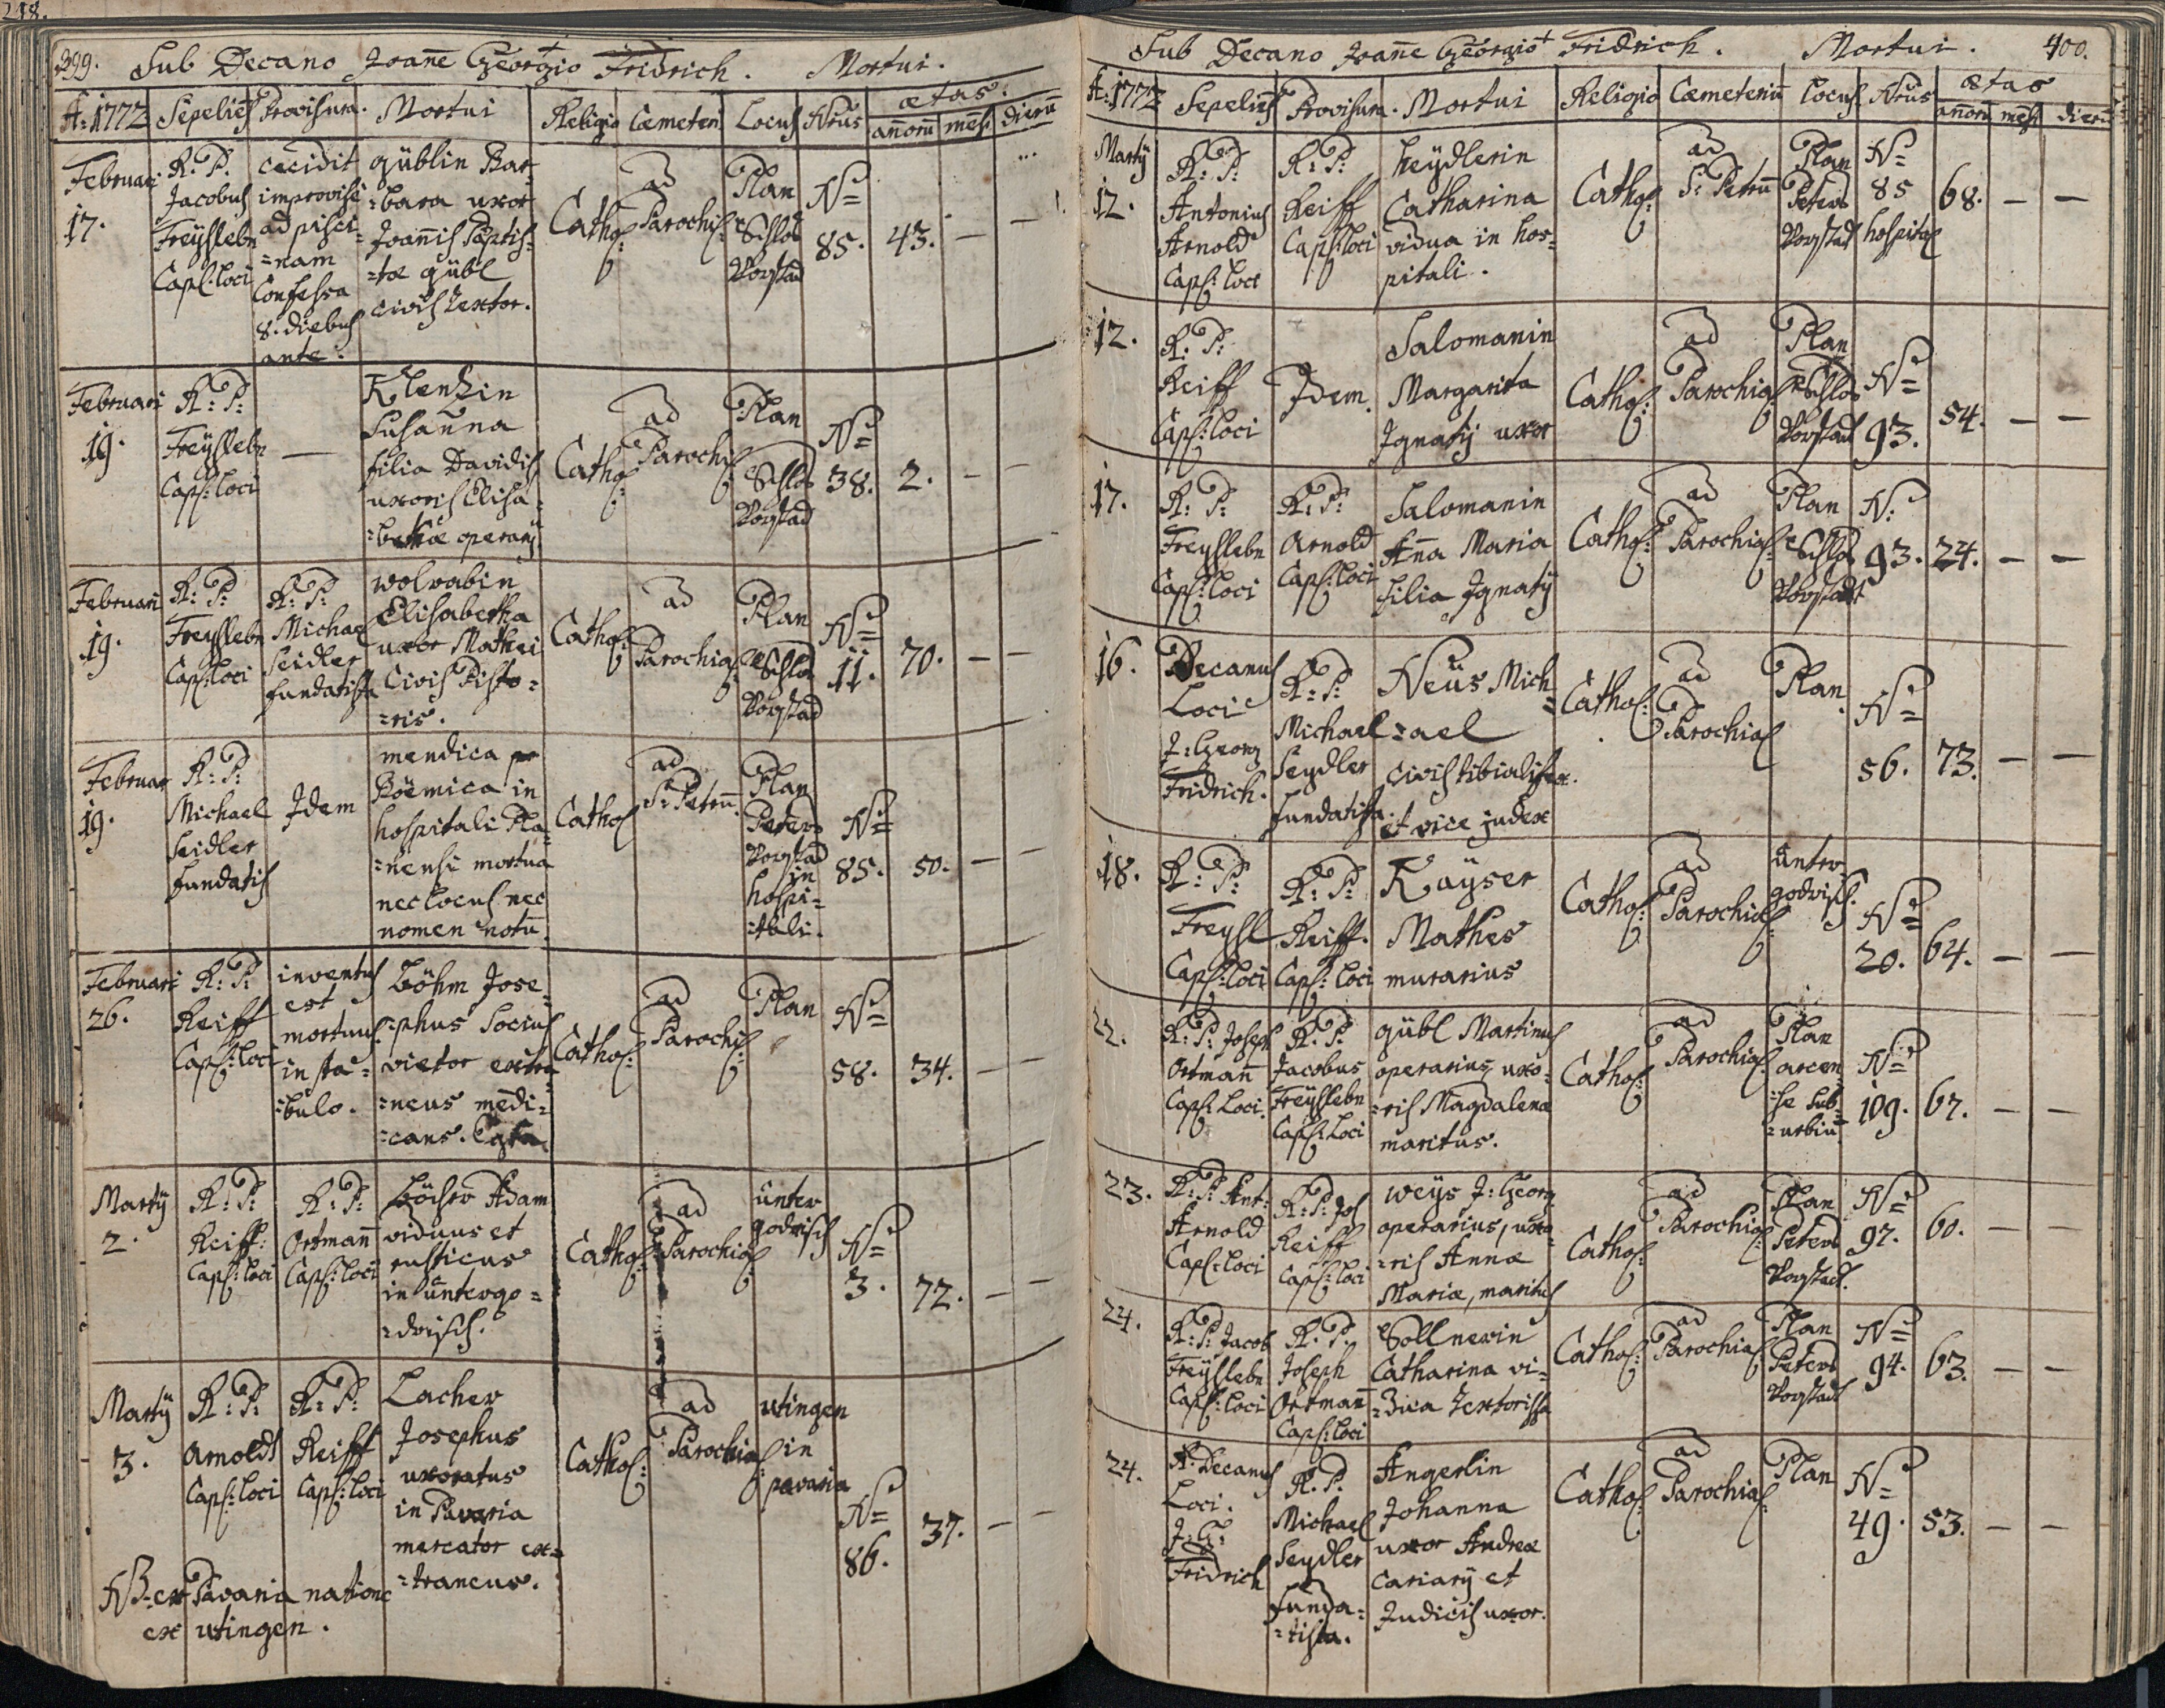 218.
399. Sub Decano Joanne Georgio Fridrich. Mortui.
A: 1772 Sepeliens Provisura. Mortui Religio Cæmeteri Locus Nrus ætas: annorũ mens dierũ
Februari 17.
R. P. Jacobus Freysslebn Caps: loci
cecidit
improvise
ad pisci-
=nam
Confessa
8. diebus
ante.
güblin Bar-
=bara uxor
Joannis Baptis-
=tæ gübl
civis textor.
Cathol:
ad Parochi:
Plan
Schlos
Vorstad
N= 85.
43. — —
Februari 19.
R: P: Freysslebn Caps: loci
—
Klentzin
Susanna
filia Davidis
uxoris Elisa-
=bethæ operarij
Cathol
ad Parochi
Plan
Schlos
Vorstad
N= 38.
2. — —
Februari 19.
R: P: Freysslebn Caps: loci
R: P: Michael Seidler fundatista
wolrabin
Elisabetha
uxor Mathei
Civis Pisto=
=ris.
Cathol:
ad Parochial
Plan
Schlos
Vorstad
N= 11.
70. — —
Februar 19.
R: P: Michael Seidler fundatis
Idem
mendica
Böemica in
hospitali Pla-
=nensi mortua
nec locus nec
nomen notũ
Cathol
ad S: Petrũ
Plan
Peters
Vorstad
in
hospi=
=tali.
N= 85.
50. — —
Februari 26.
R: P: Reiff Caps: loci
inventus
est
mortuus
in sta=
=bulo.
Böhm Jose-
=phus Socius
vietor extra
=neus medi=
=cans.
Cathol:
ad Parochi
Plan
N= 58.
34. — —
Martÿ 2.
R: P: Reiff: Caps: loci
R: P: Ortmann Caps: loci
Adam
viduus et
rusticus
in üntergo=
=drisch.
Cathol:
ad Parochial
ünter
godrisch
N= 3.
72. — —
Martÿ 3.
R: P: Arnoldt Caps: loci
R: P: Reiff Caps: loci
Lacher
Josephus
uxoratus
in Pavaria
mercator ex=
=traneus.
Cathol:
ad Parochial
utingen
in
pavaria
N= 86.
37. — —
NB. ex Pavaria natione
ex utingen.
Sub Decano Joanne Georgio Fridrich. Mortui. 400.
A: 1772 Sepeliens Provisura. Mortui Religio Cæmeteriũ locus Nrus ætas annorũ mens dierũ
Martÿ 12.
R: P: Antonius Arnold Caps: loci
R: P: Reiff Caps: loci
heydlerin
Catharina
vidua in hos=
pitali.
Cathol:
ad S: Petrũ
Plan
Peters
Vorstad
N= 85
hospital
68. — —
12.
R: P: Reiff Caps: loci
Idem.
Salomanin
Margarita
Ignatÿ uxor
Cathol:
ad Parochial
Plan
Schlos
Vorstad
N= 93.
54. — —
17.
R: P: Freysslebn Caps: loci
R: P: Arnold Caps: loci
Salomanin
Anna Maria
filia Ignatÿ
Cathol:
ad Parochial:
Plan
Schlos
Vorstadt
N: 93.
24. — —
16.
Decanus
Loci
J: Georg
Fridrich.
R: P: Michael Seydler fundatista
Neüs Mich
=ael
civis tibialifex.
et vice judex
Cathol:
ad Parochial
Plan.
N= 56.
73. — —
18.
R: P: Freysl Caps: loci
R: P: Reiff. Caps: loci
Kaÿser
Mathes
murarius
Cathol:
ad Parochial
ünter
godrisch.
N= 20.
64. — —
22.
R: P: Joseph Ortmann Caps: Loci.
R: P: Jacobus Freysslebn Caps: Loci
gübl Martinus
operarius, uxo-
=ris Magdalena
maritus.
Cathol:
ad Parochial
Plan
arcen-
=se sub-
=urbiũ
N= 109.
67. — —
23.
R: P: Ant: Arnold Caps: loci
R: P: Jos Reiff Caps: loci
weÿs J: Georg
operarius, uxo-
=ris Annæ
Mariæ, maritus
Cathol:
ad Parochial
Plan
Peters
Vorstadt.
N= 97.
60. — —
24.
R: P: Jacob Freysslebn Caps: loci
R: P: Joseph Ortmann Caps: loci
Sollnerin
Catharina vi-
=dua textorissa
Cathol:
ad Parochial
Plan
Peters
Vorstadt
N= 94.
63. — —
24.
R: Decanus
Loci.
J: G:
Fridrich
R: P: Michael Seydler funda=
=tista.
Angerlin
Johanna
uxor Andreæ
cariarÿ et
Judicis uxor.
Cathol
ad Parochial:
Plan
N= 49.
53. — —